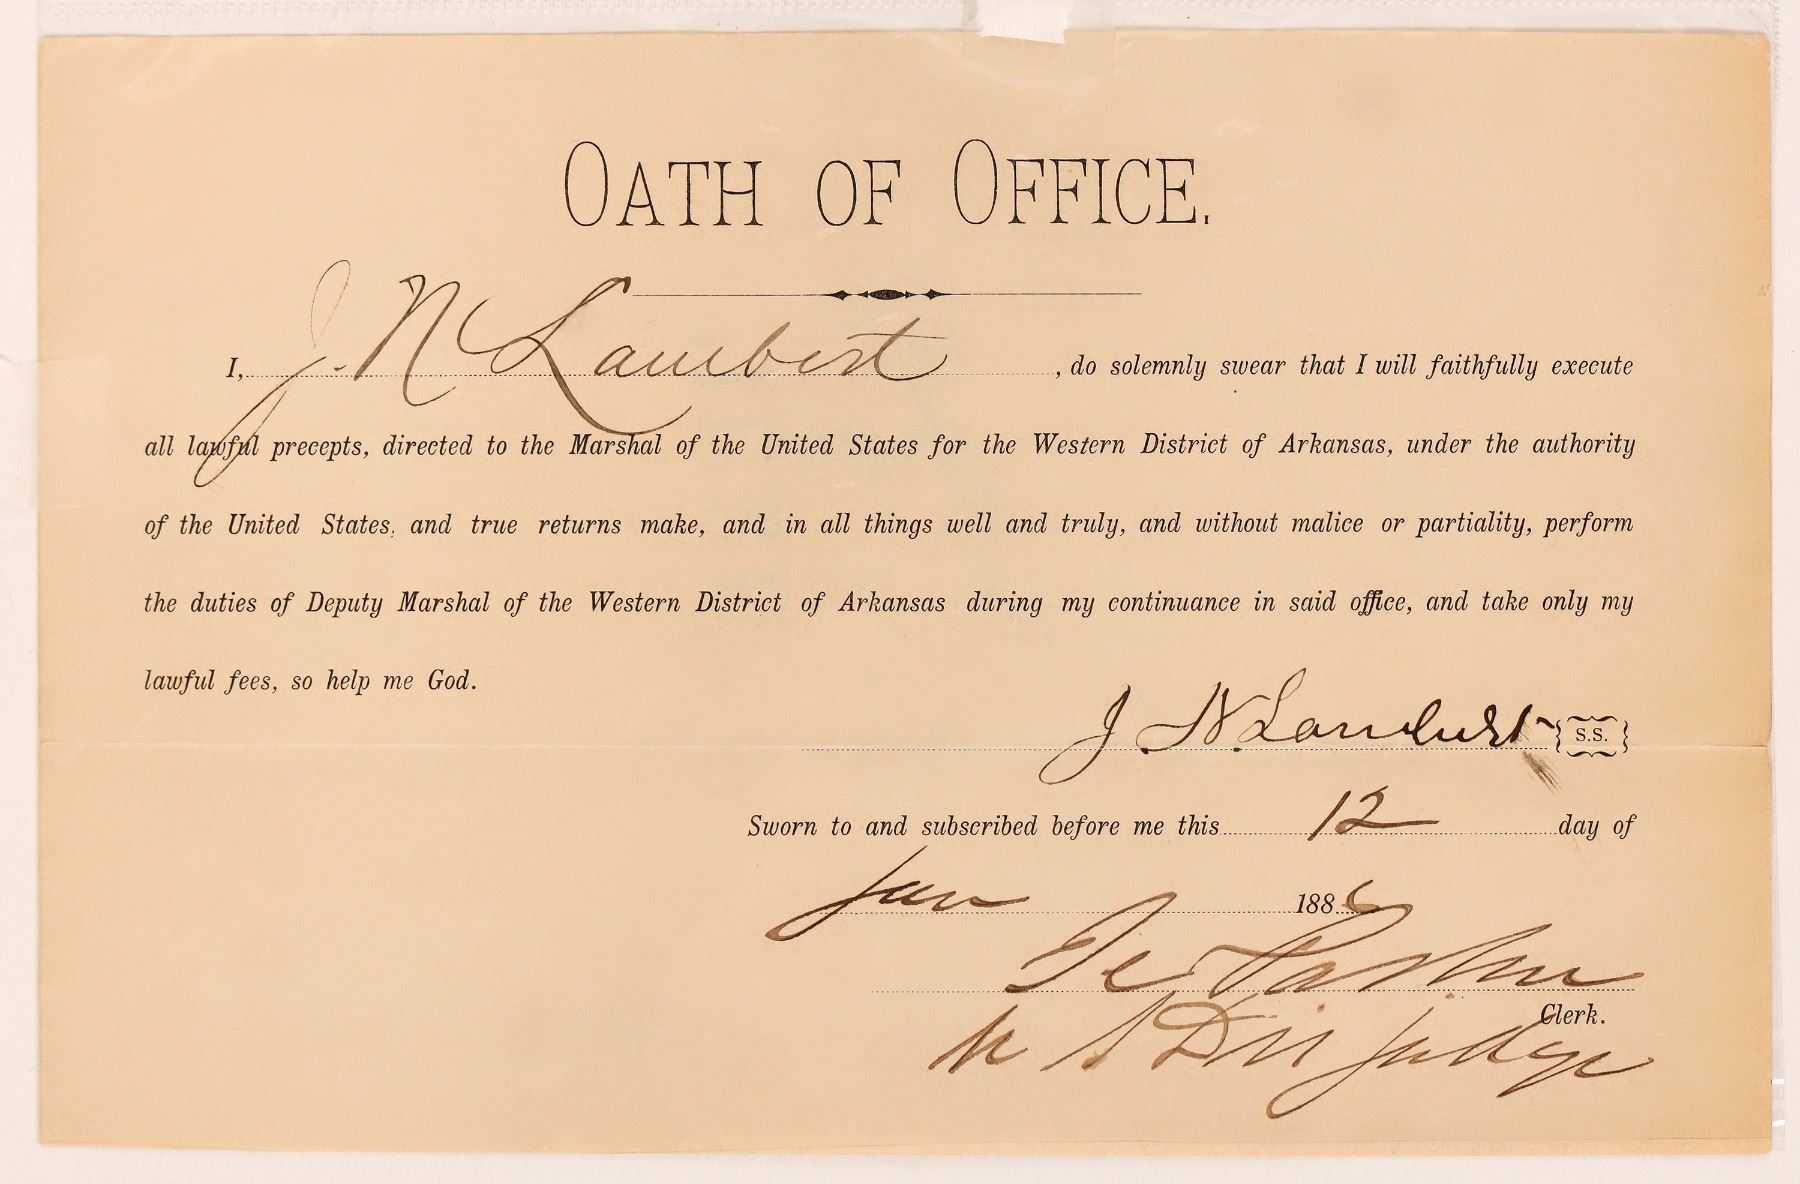 OATH OF OFFICE.
I, J. N Lambert, do solemnly swear that I will faithfully execute
all lawful precepts, directed to the Marshal of the United States for the Western District of Arkansas, under the authority
of the United States, and true returns make, and in all things well and truly, and without malice or partiality, perform
the duties of Deputy Marshal of the Western District of Arkansas during my continuance in said office, and take only my
lawful fees, so help me God.
J. N. Lambert S.S.
Sworn to and subscribed before me this 12 day of
Jan 1886
I C Parker
Clerk.
U S Dis Judge